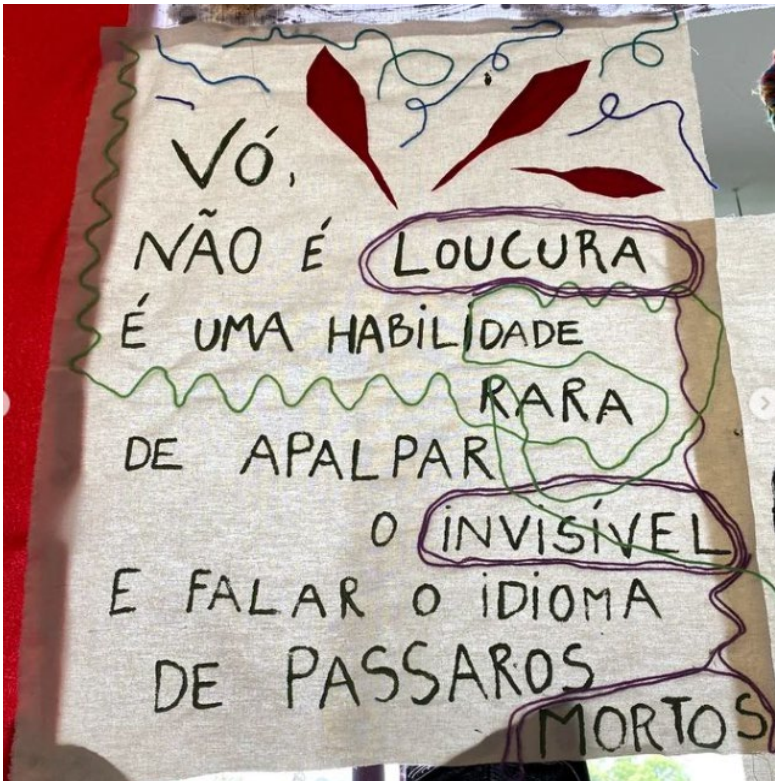 VÓ,
NÃO É LOUCURA
É UMA HABILIDADE
RARA
DE APALPAR
O INVISÍVEL
E FALAR O IDIOMA
DE PASSAROS
MORTOS